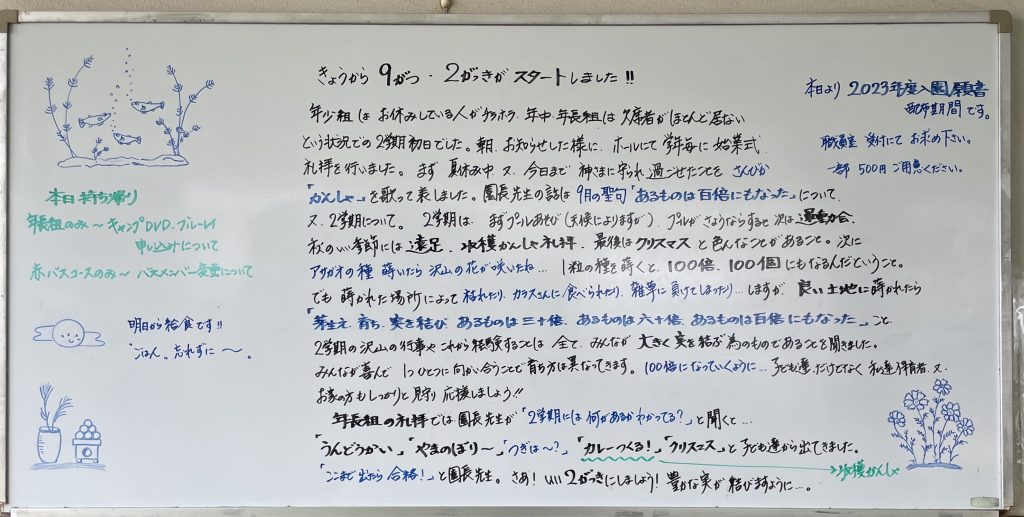 きょうから 9がつ・2がっきが スタートしました!!
年少組は お休みしている人が チラホラ 年中 年長組は 欠席者がほとんど居ない
という状況での2学期初日でした。朝、お知らせした様に、ホールにて 学年毎に 始業式
礼拝を行いました。まず 夏休み中 又、今日まで 神さまに守られ 過ごせたことを さんびか
「かんしゃ」を歌って表しました。園長先生の話は 9月の聖句「あるものは百倍にもなった」について、
又、2学期について。 2学期は、まずプールあそび(天候によりますが)、プルが さようならすると 次は、運動会、
秋のいい季節には 遠足、収穫かんしゃ礼拝、最後はクリスマス と色んなことがあること。次に
アサガオの種 蒔いたら 沢山の花が咲いたね… 1粒の種を蒔くと、100倍、100個にもなるんだということ。
でも 蒔かれた場所によって 枯れたり、カラスさんに食べられたり、雑草に負けてしまったり…しますが、良い土地に蒔かれたら
「芽生え、育ち、実を結び、あるものは三十倍、あるものは六十倍、あるものは百倍にもなった」こと、
2学期の沢山の行事や これから経験することは 全て、みんなが 大きく実を結ぶ為のものであることを聞きました。
みんなが喜んで 1つひとつに向かい合うことで 育ち方は異なってきます。100倍になっていくように… 子ども達だけでなく 私達保育者、又、
お家の方も しっかりと見守り 応援しましょう!!
年長組の礼拝では園長先生が「2学期には 何があるかわかってる?」と聞くと…
「うんどうかい」「やまのぼり〜」「つぎは〜?」「カレーつくる!」「クリスマス」と 子ども達から出てきました。
→収穫かんしゃ
「ここまで出たら 合格!」と園長先生。さあ! いい2がっきにしましょう! 豊かな実が 結びますように…。
本日より 2023年度入園願書
配布期間です。
職員室 受付にて お求め下さい。
一部 500円 ご用意ください。
本日持ち帰り
年長組のみ〜キャンプDVD、ブルーレイ
申し込みについて
赤バスコースのみ〜 バスメンバー変更について
明日から給食です!!
"ごはん" 忘れずに〜。